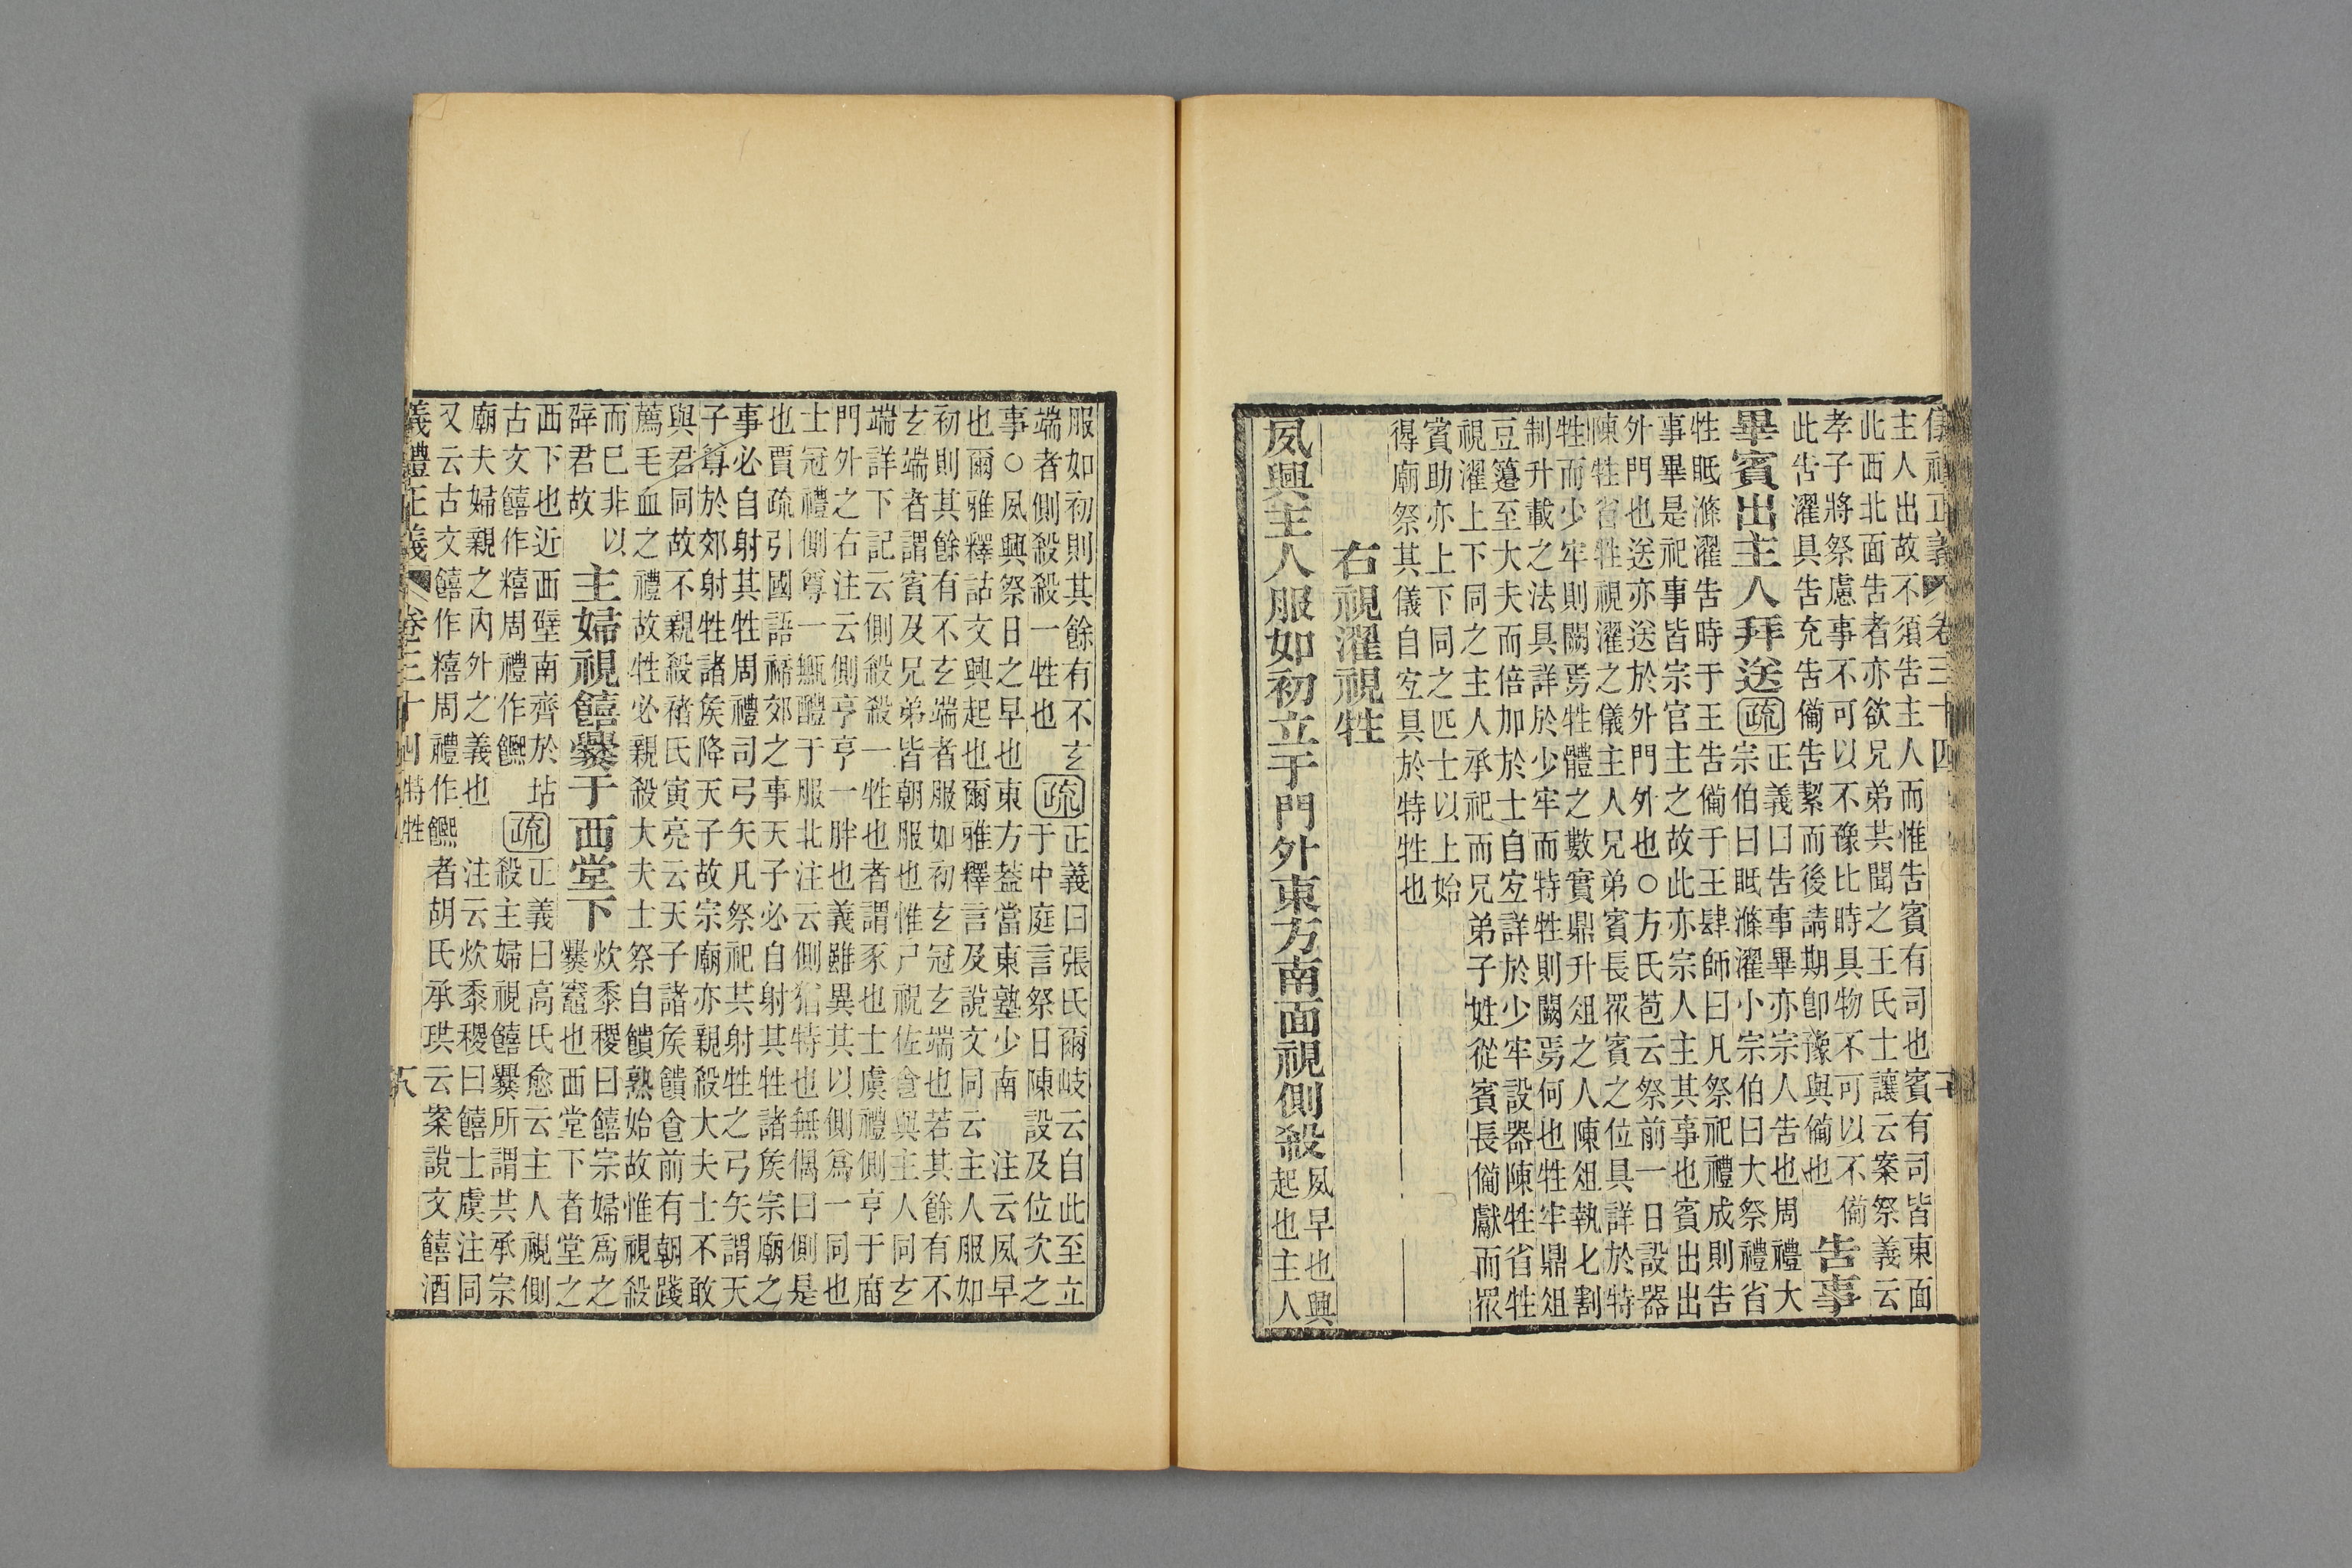 儀禮正義 卷三十四
主人出故不須告主人而惟告賓有司也賓有司皆東面
此西北面告者亦欲兄弟共聞之王氏士讓云案祭義云
孝子將祭慮事不可以不豫比時具物不可以不備
此告濯具告充告備告絜而後請期卽豫與備也
告事
畢賓出主人拜送
疏
正義曰告事畢亦宗人告也周禮大
宗伯曰眡滌濯小宗伯曰大祭禮省
牲眡滌濯告時于王告備于王肆師曰凡祭祀禮成則告
事畢是祀事皆宗官主之故此亦宗人主其事也賓出出
外門也送亦送於外門外也○方氏苞云祭前一日設器
陳牲省牲視濯之儀主人兄弟賓長眾賓之位具詳於特
牲而少牢則闕焉牲體之數實鼎升俎之人陳俎執匕割
制升載之法具詳於少牢而特牲則闕焉何也牲牢鼎俎
豆籩至大夫而倍加於士自宐詳於少牢設器陳牲省牲
視濯上下同之主人承祀而兄弟子姓從賓長備獻而眾
賓助亦上下同之匹士以上始
得廟祭其儀自宐具於特牲也
右視濯視牲
夙興主人服如初立于門外東方南面視側殺
夙早也興
起也主人
服如初則其餘有不玄
端者側殺殺一牲也
疏
正義曰張氏爾岐云自此至立
于中庭言祭日陳設及位次之
事○夙興祭日之早也東方葢當東塾少南 注云夙早
也爾雅釋詁文興起也爾雅釋言及說文同云主人服如
初則其餘有不玄端者服如初玄冠玄端也若其餘有不
玄端者謂賓及兄弟皆朝服也惟尸祝佐食與主人同玄
端詳下記云側殺殺一牲也者謂豕也士虞禮側亨于廟
門外之右注云側亨亨一胖也義雖異其以側爲一同也
士冠禮側尊一甒醴于服北注云側猶特也無偶曰側是
也賈疏引國語禘郊之事天子必自射其牲諸矦宗廟之
事必自射其牲周禮司弓矢凡祭祀共射牲之弓矢謂天
子尊於郊射牲諸矦降天子故宗廟亦親殺大夫士不敢
與君同故不親殺褚氏寅亮云天子諸矦饋食前有朝踐
薦毛血之禮故牲必親殺大夫士祭自饋熟始故惟視殺
而已非以
辟君故
主婦視饎爨于西堂下
炊黍稷曰饎宗婦爲之
爨竈也西堂下者堂之
西下也近西壁南齊於坫
古文饎作糦周禮作䭈
疏
正義曰高氏愈云主人視側
殺主婦視饎爨所謂共承宗
廟夫婦親之內外之義也
注云炊黍稷曰饎士虞注同
又云古文饎作糦周禮作䭈者胡氏承珙云案說文饎酒
儀禮正義 卷三十四 特牲 八